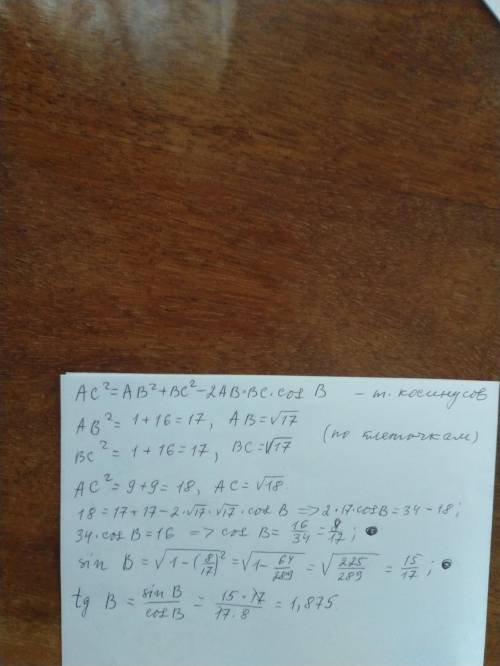 AC²=AB²+BC²-2AB·BC·cos B - т. косинусов
AB²= 1+16=17, AB=√17
(по клеточкам)
BC²= 1+16=17, BC=√17
AC²=9+9=18, AC=√18.
18=17+17-2·√17·√17·cos B => 2·17·cosB=34-18;
34·cos B=16 => cos B= 16/34=8/17;
sin B=√(1-(8/17)²)=√(1-64/289)=√(225/289)=15/17;
tg B= sin B/cos B = 15·17/17·8 = 1,875